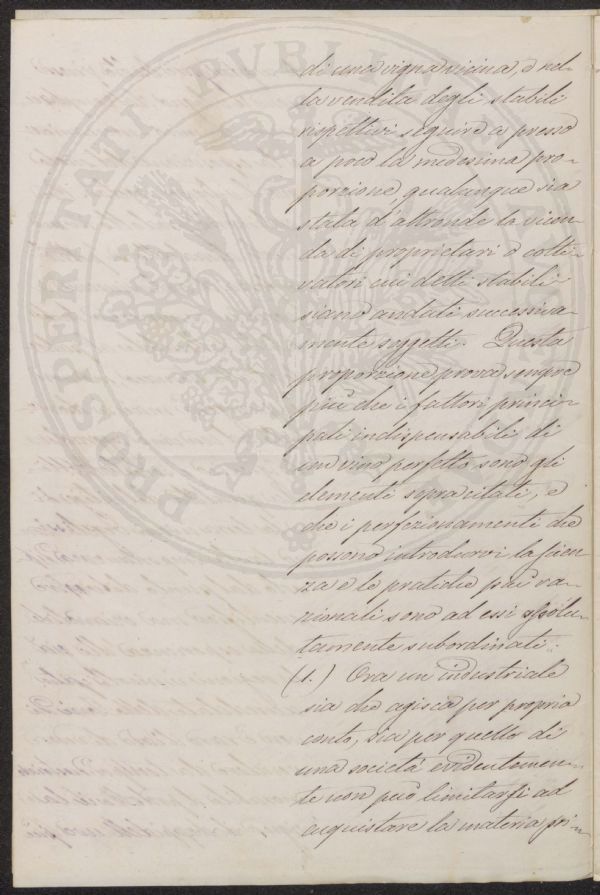 di una vigna vicina, e nel-
la vendita degli stabili
rispettivi seguire a presso
a poco la medesima pro-
porzione, qualunque sia
stata d'altronde la vicen-
da di proprietari o colti-
vatori cui detti stabili
siano andati successiva-
mente soggetti. Questa
proporzione prova sempre
più che i fattori princi-
pali indispensabili di
un vino perfetto sono gli
elementi sopracitati, e
che i perfezionamenti che
possono introdurvi la scien-
za e le pratiche più ra-
zionali sono ad essi assolu-
tamente subordinati.
(1.) Ora un industriale
sia che agisca per proprio
conto, sia per quello di
una società evidentemen-
te non può limitarsi ad
acquistare la materia pri-
PROSPERITATI PUBLICAE